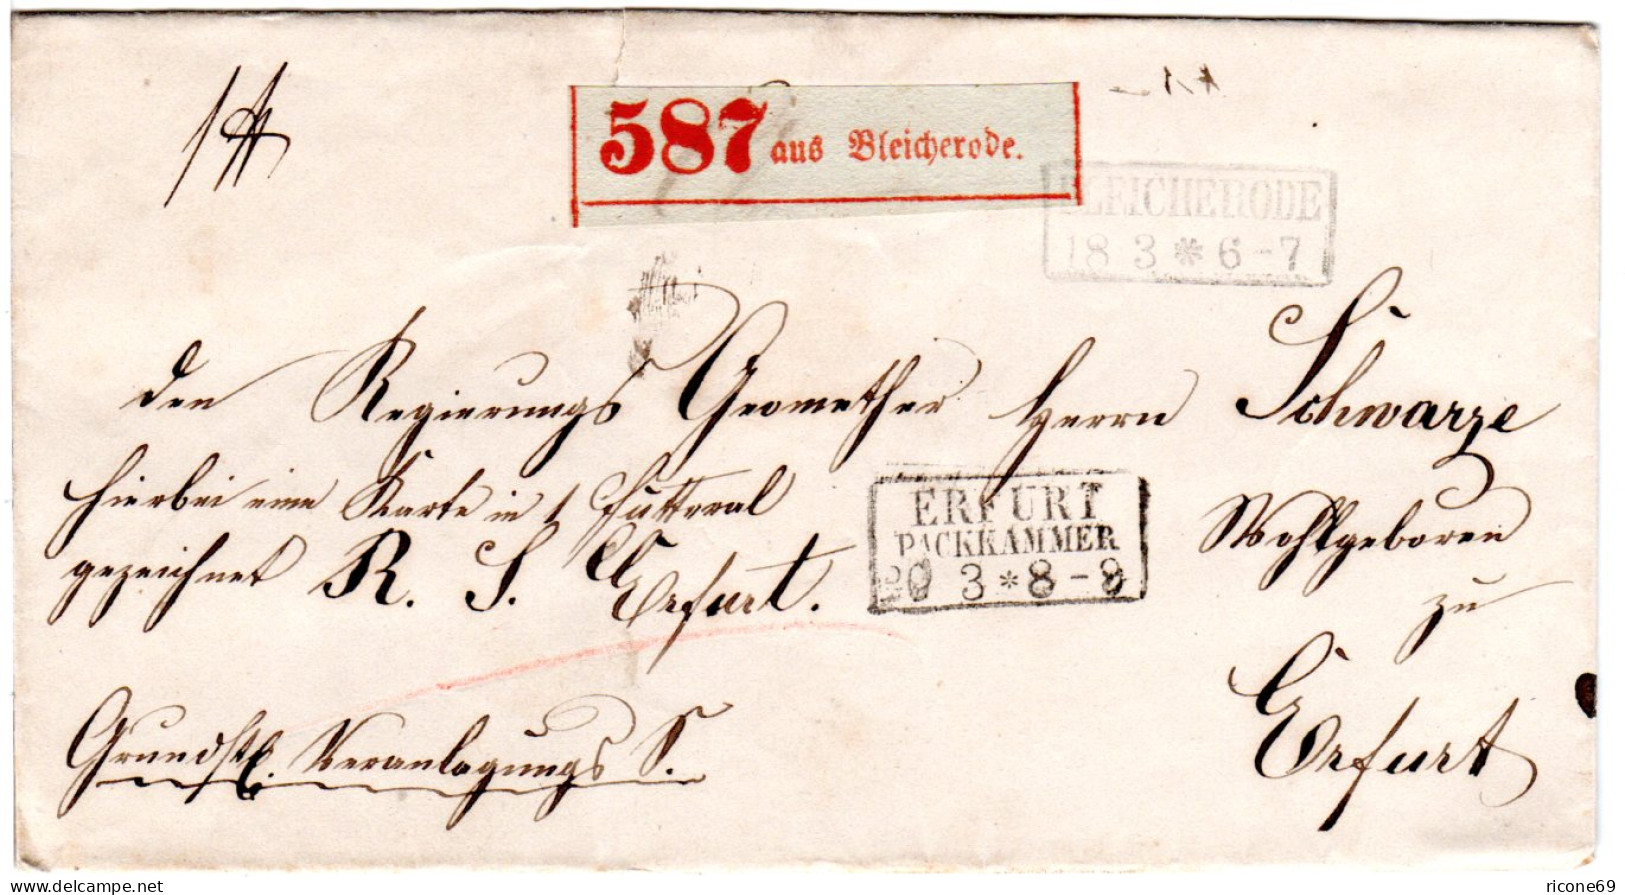 587 aus Bleicherode.
BLEICHERODE
18 3 * 6-7
den Regierungs Geomether Herrn Schwarze
hierbei eine Karte in 1 Futteral
Wohlgeboren
gezeichnet R. S. Erfurt.
ERFURT
PACKKAMMER
20 3 * 8-9
zu
Erfurt
Grundst. Veranlagungs S.
delcampe.net
ricone69